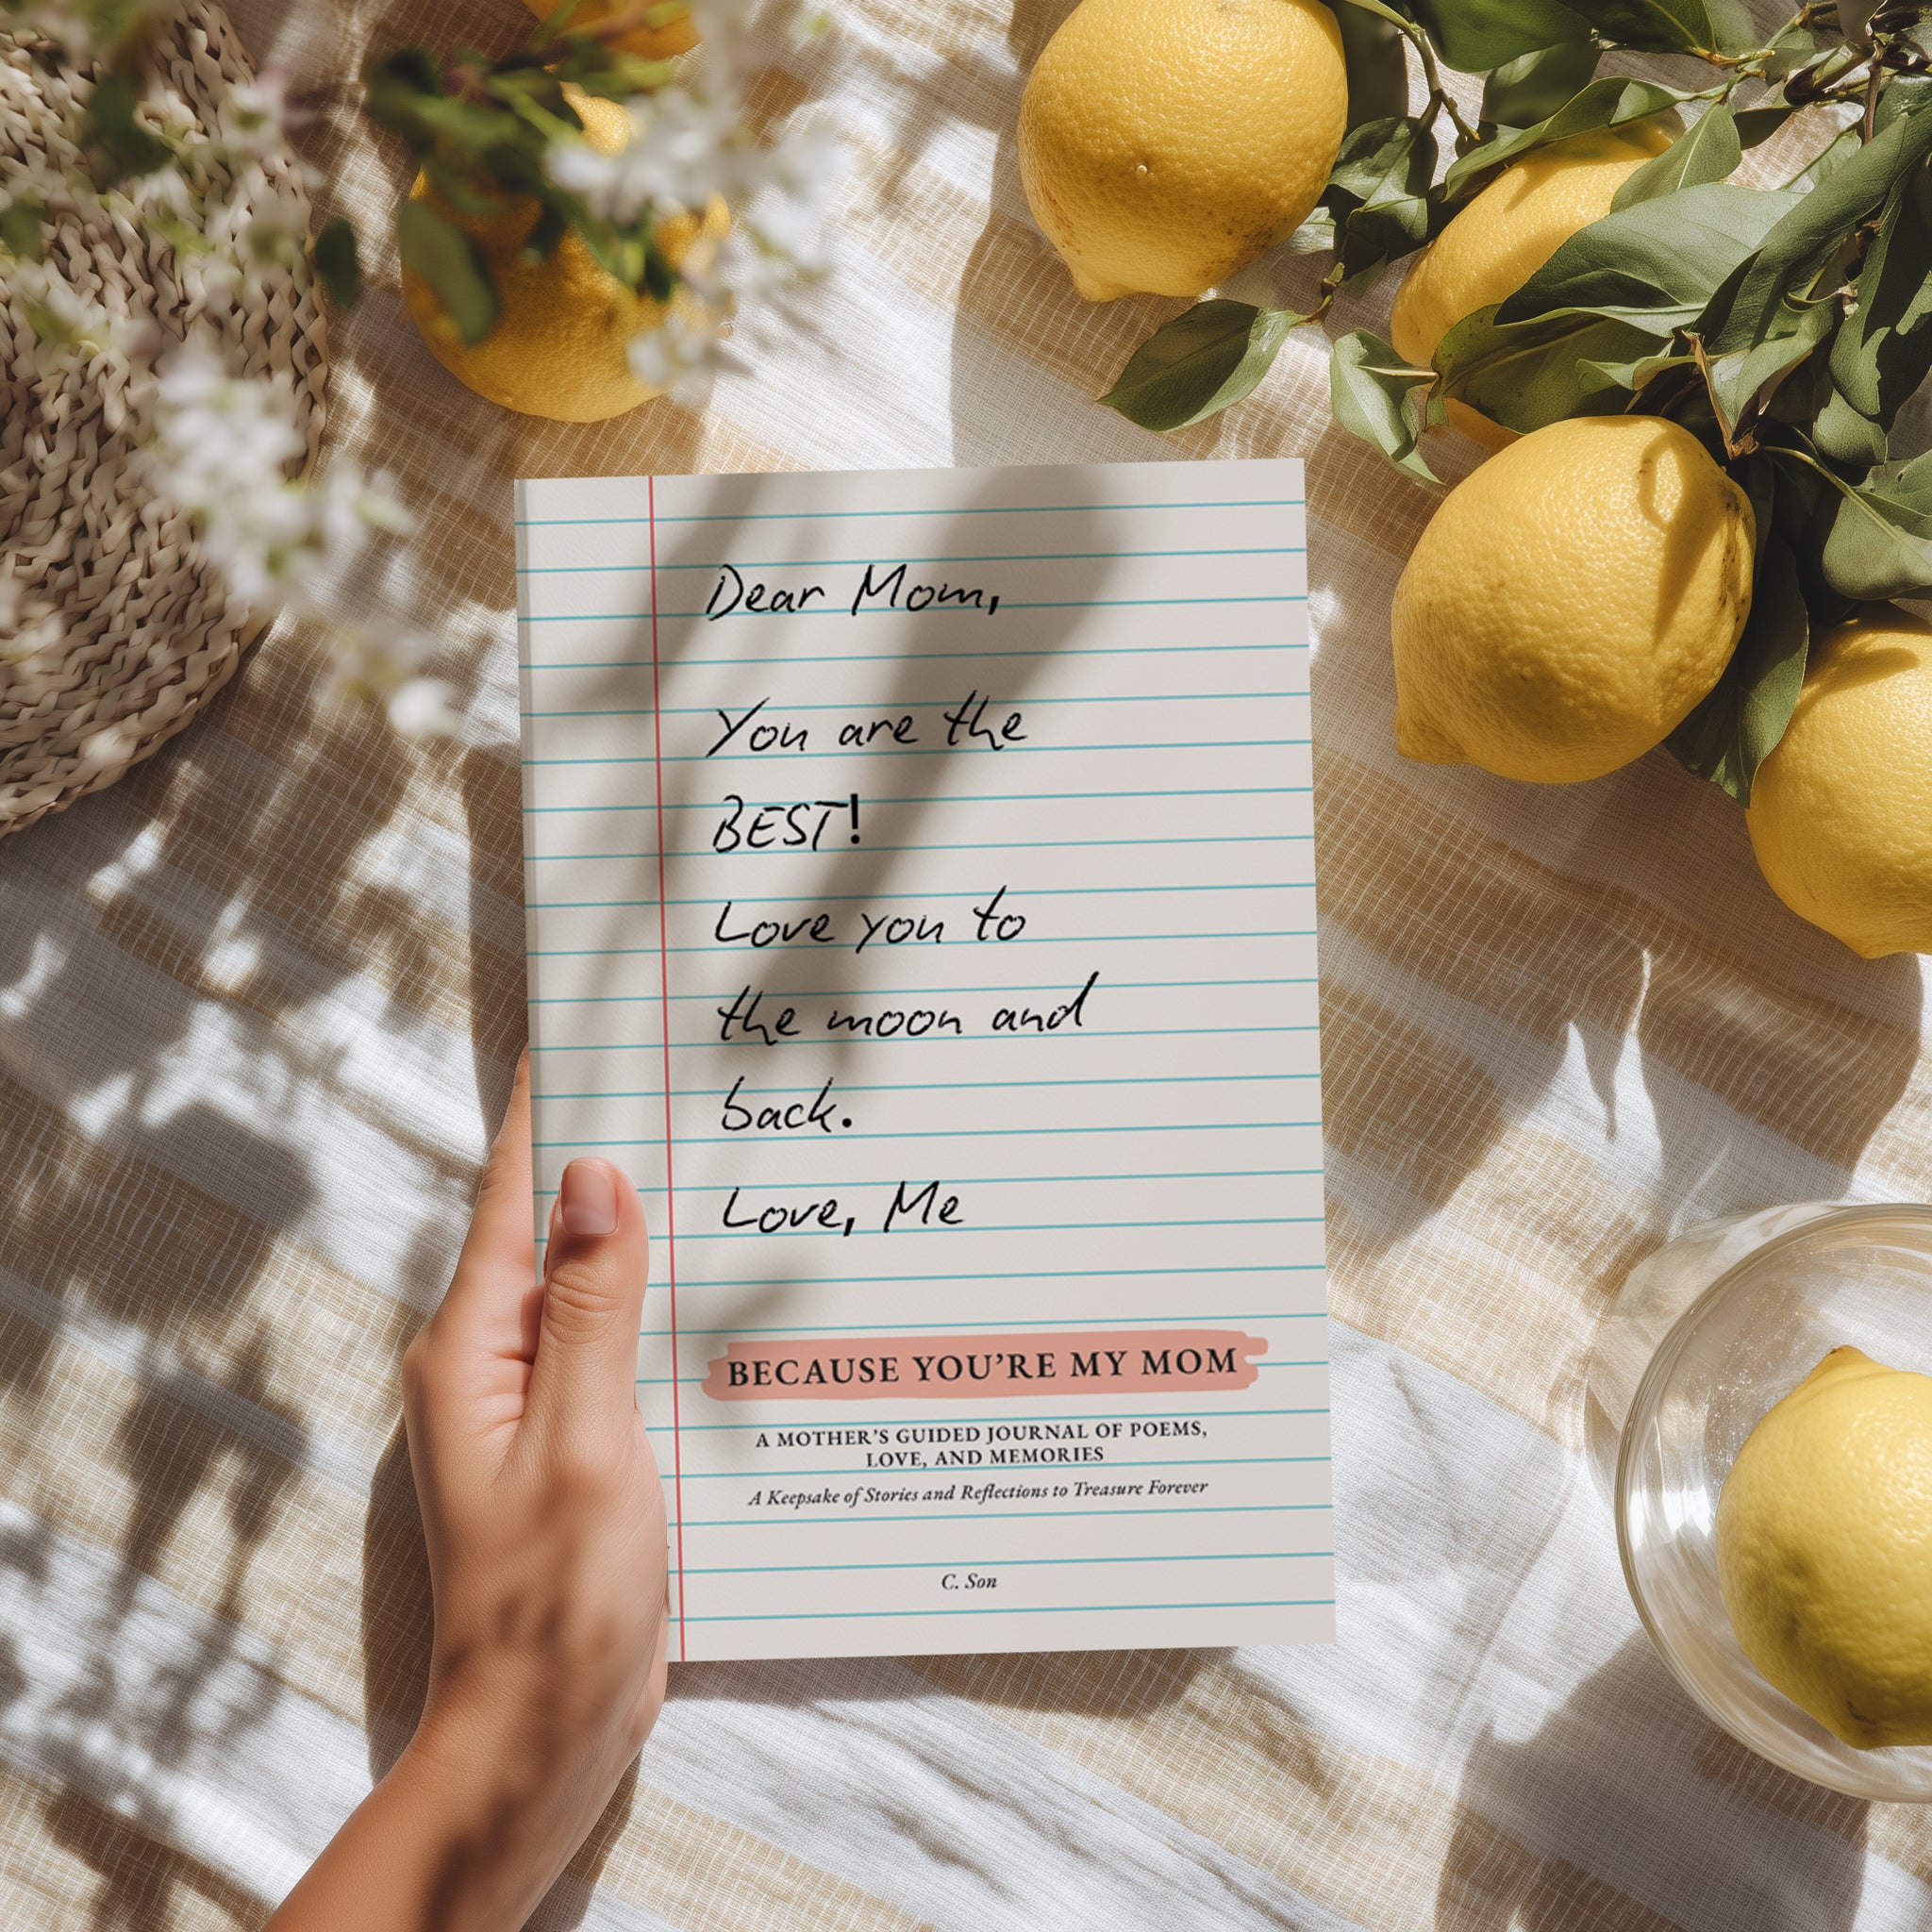 Dear Mom,
You are the
BEST!
Love you to
the moon and
back.
Love, Me
BECAUSE YOU'RE MY MOM
A MOTHER'S GUIDED JOURNAL OF POEMS,
LOVE, AND MEMORIES
A Keepsake of Stories and Reflections to Treasure Forever
C. Son